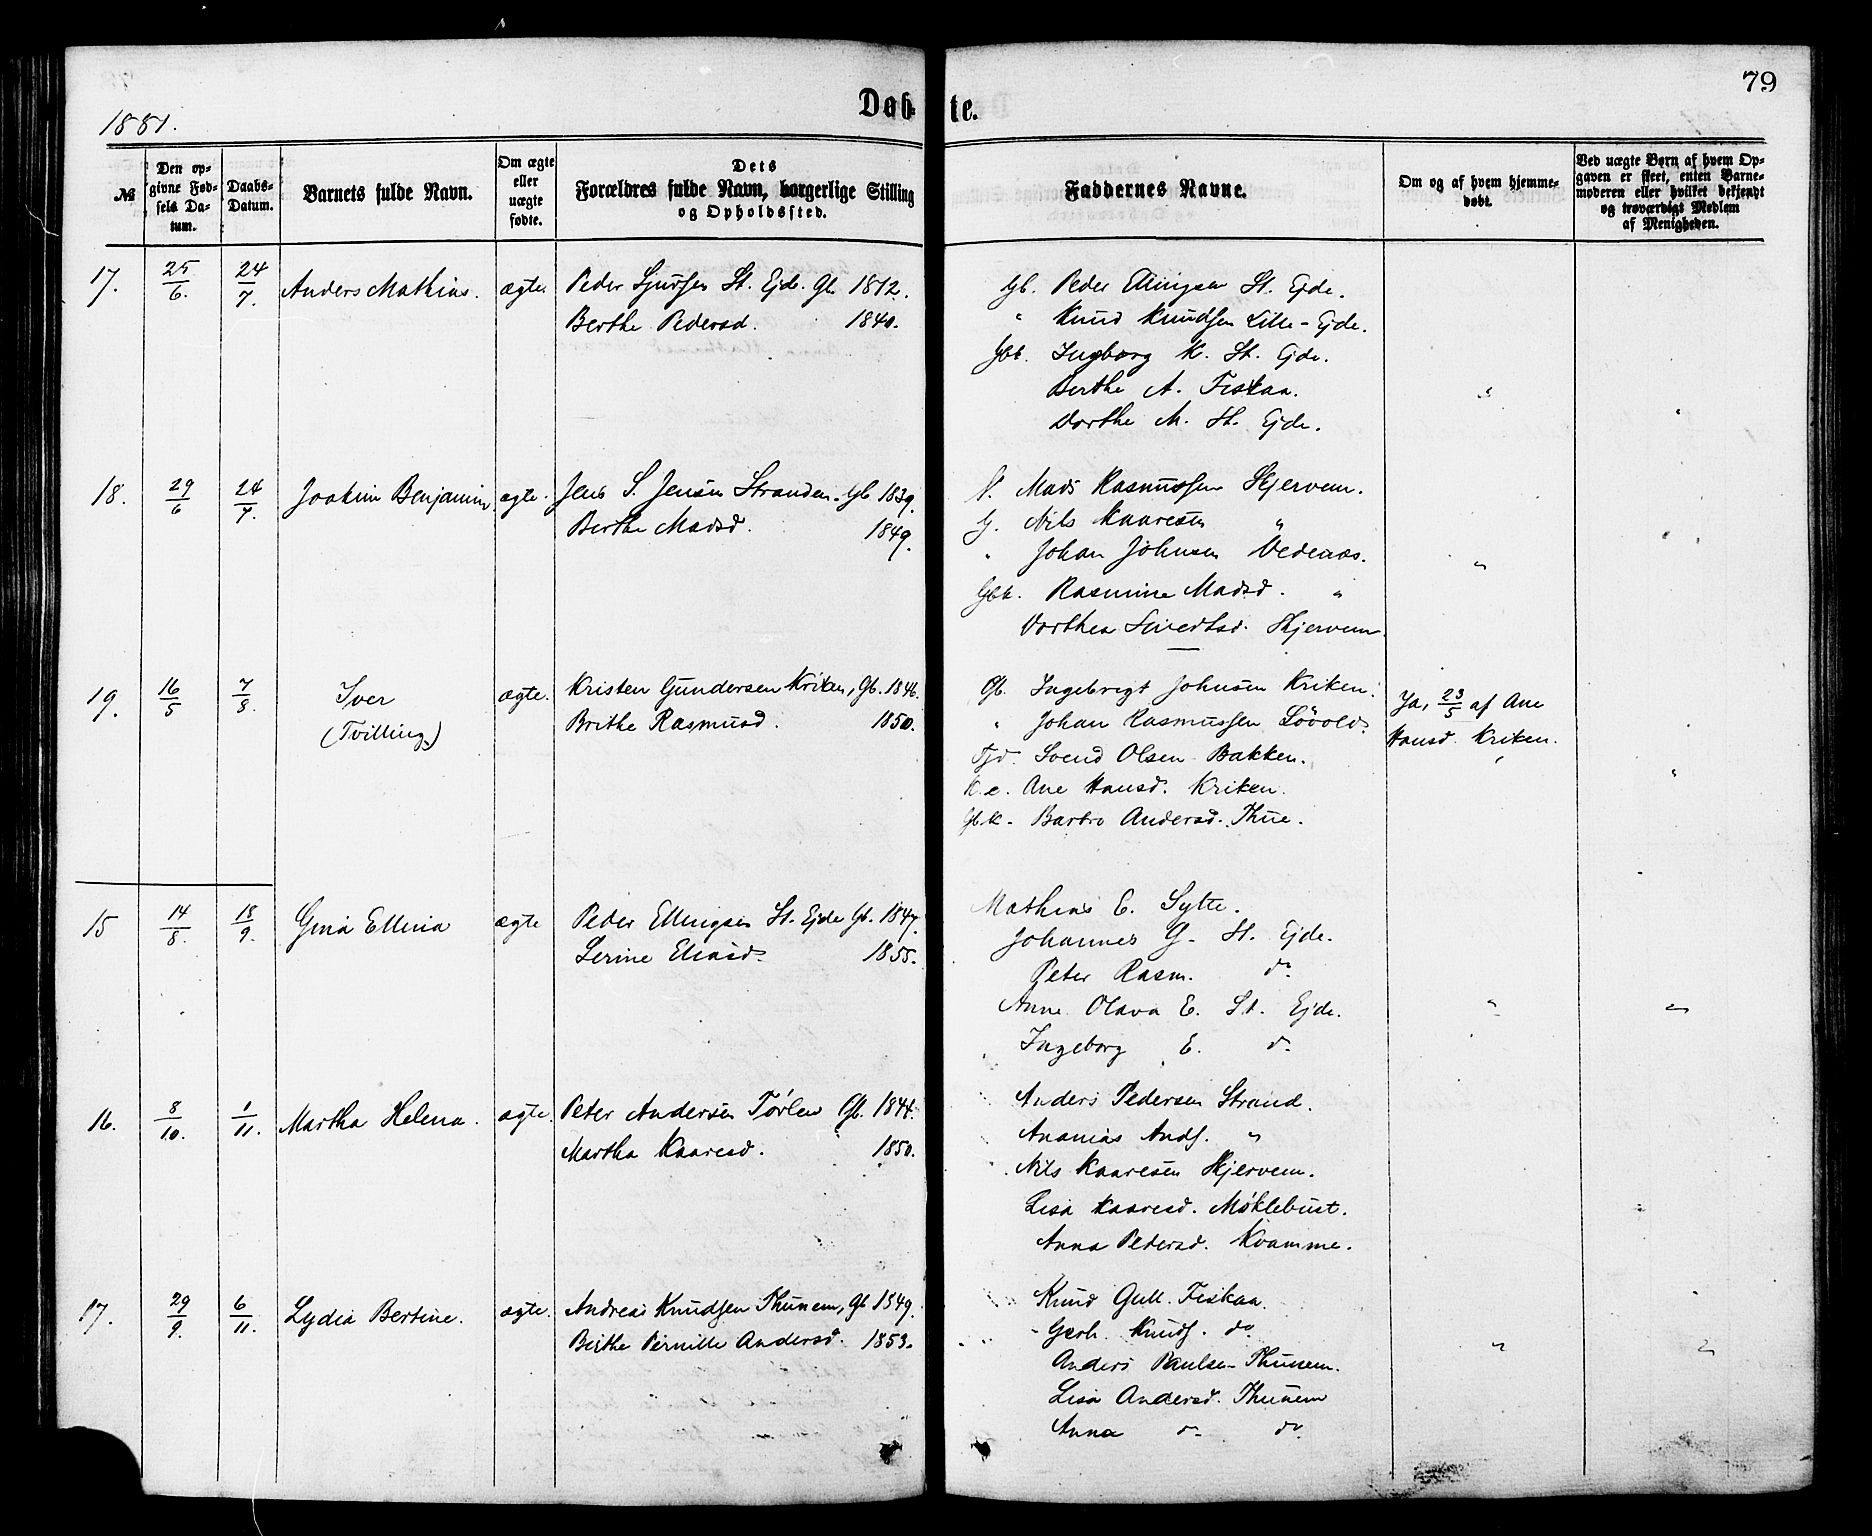 79
1881.
Døbte.
№
Den opgivne Fødsels Datum.
Daabs-Datum.
Barnets fulde Navn.
Om ægte eller uægte fødte.
Dets Forældres fulde Navn, borgerlige Stilling og Opholdssted.
Faddernes Navne.
Om og af hvem hjemmedøbt.
Ved uægte Børn af hvem Opgaven er skeet, enten Barnemoderen eller hvilket bekjendt og troværdigt Medlem af Menigheden.
17. 25/6. 24/7. Anders Mathias. ægte. Peder Sjursen St. Ejde. Gb. 1842.
Berthe Pedersd. 1840.
Gb. Peder Ellingsen St. Ejde.
" Knud Knudsen Lille-Ejde.
Gbk. Ingborg K. St. Ejde.
Berthe A. Fiskaa.
Dorthe M. St. Ejde.
18. 29/6 24/7. Joakim Benjamin ægte. Jens S. Jensen Stranden. Gb 1839.
Berthe Madsd. 1849.
Mads Rasmussen Hjervem.
G. Nils Kaaresen "
" Johan Johnsen Vedenæs.
Gbk. Rasmine Madsd. "
Dorthea Sivertsd. Hjervem.
19. 16/5 7/8. Iver ægte. Kristen Gundersen Kriken, Gb. 1846.
(Tvilling) Brithe Rasmusd. 1850.
Gb. Ingebrigt Johnsen Kriken.
" Johan Rasmussen Løvold.
Svend Olsen Bakken.
K.e. Ane Hansd. Kriken.
Gbk. Barbro Andersd. Thue.
Ja, 23/5 af Ane
Hansd. Kriken.
15 14/8. 18/9. Gina Ellena ægte Peder Ellingsen St. Ejde Gb. 1847.
Serine Eliasd. 1855.
Mathias E. Sylte.
Johannes G. St. Ejde.
Peter Rasm. do
Anne Olava E. St. Ejde.
Ingeborg E. do
16. 8/10. 1/11. Martha Helena. ægte. Peter Andersen Tørlen Gb. 1844.
Martha Kaaresd. 1850.
Anders Pedersen Strand.
Ananias Ands. "
Nils Kaaresen Hjervem.
Lisa Kaaresd. Møklebust.
Anna Pedersd. Kvamme.
17. 29/9. 6/11. Lydia Bertine. ægte. Andreas Knudsen Thunem, Gb 1849.
Berthe Pernille Andersd. 1853.
Knud Gull. Fiskaa.
Gerh. Knuds. do
Anders Paulsen Thunem.
Lisa Andersd. Thunem
Anna do do